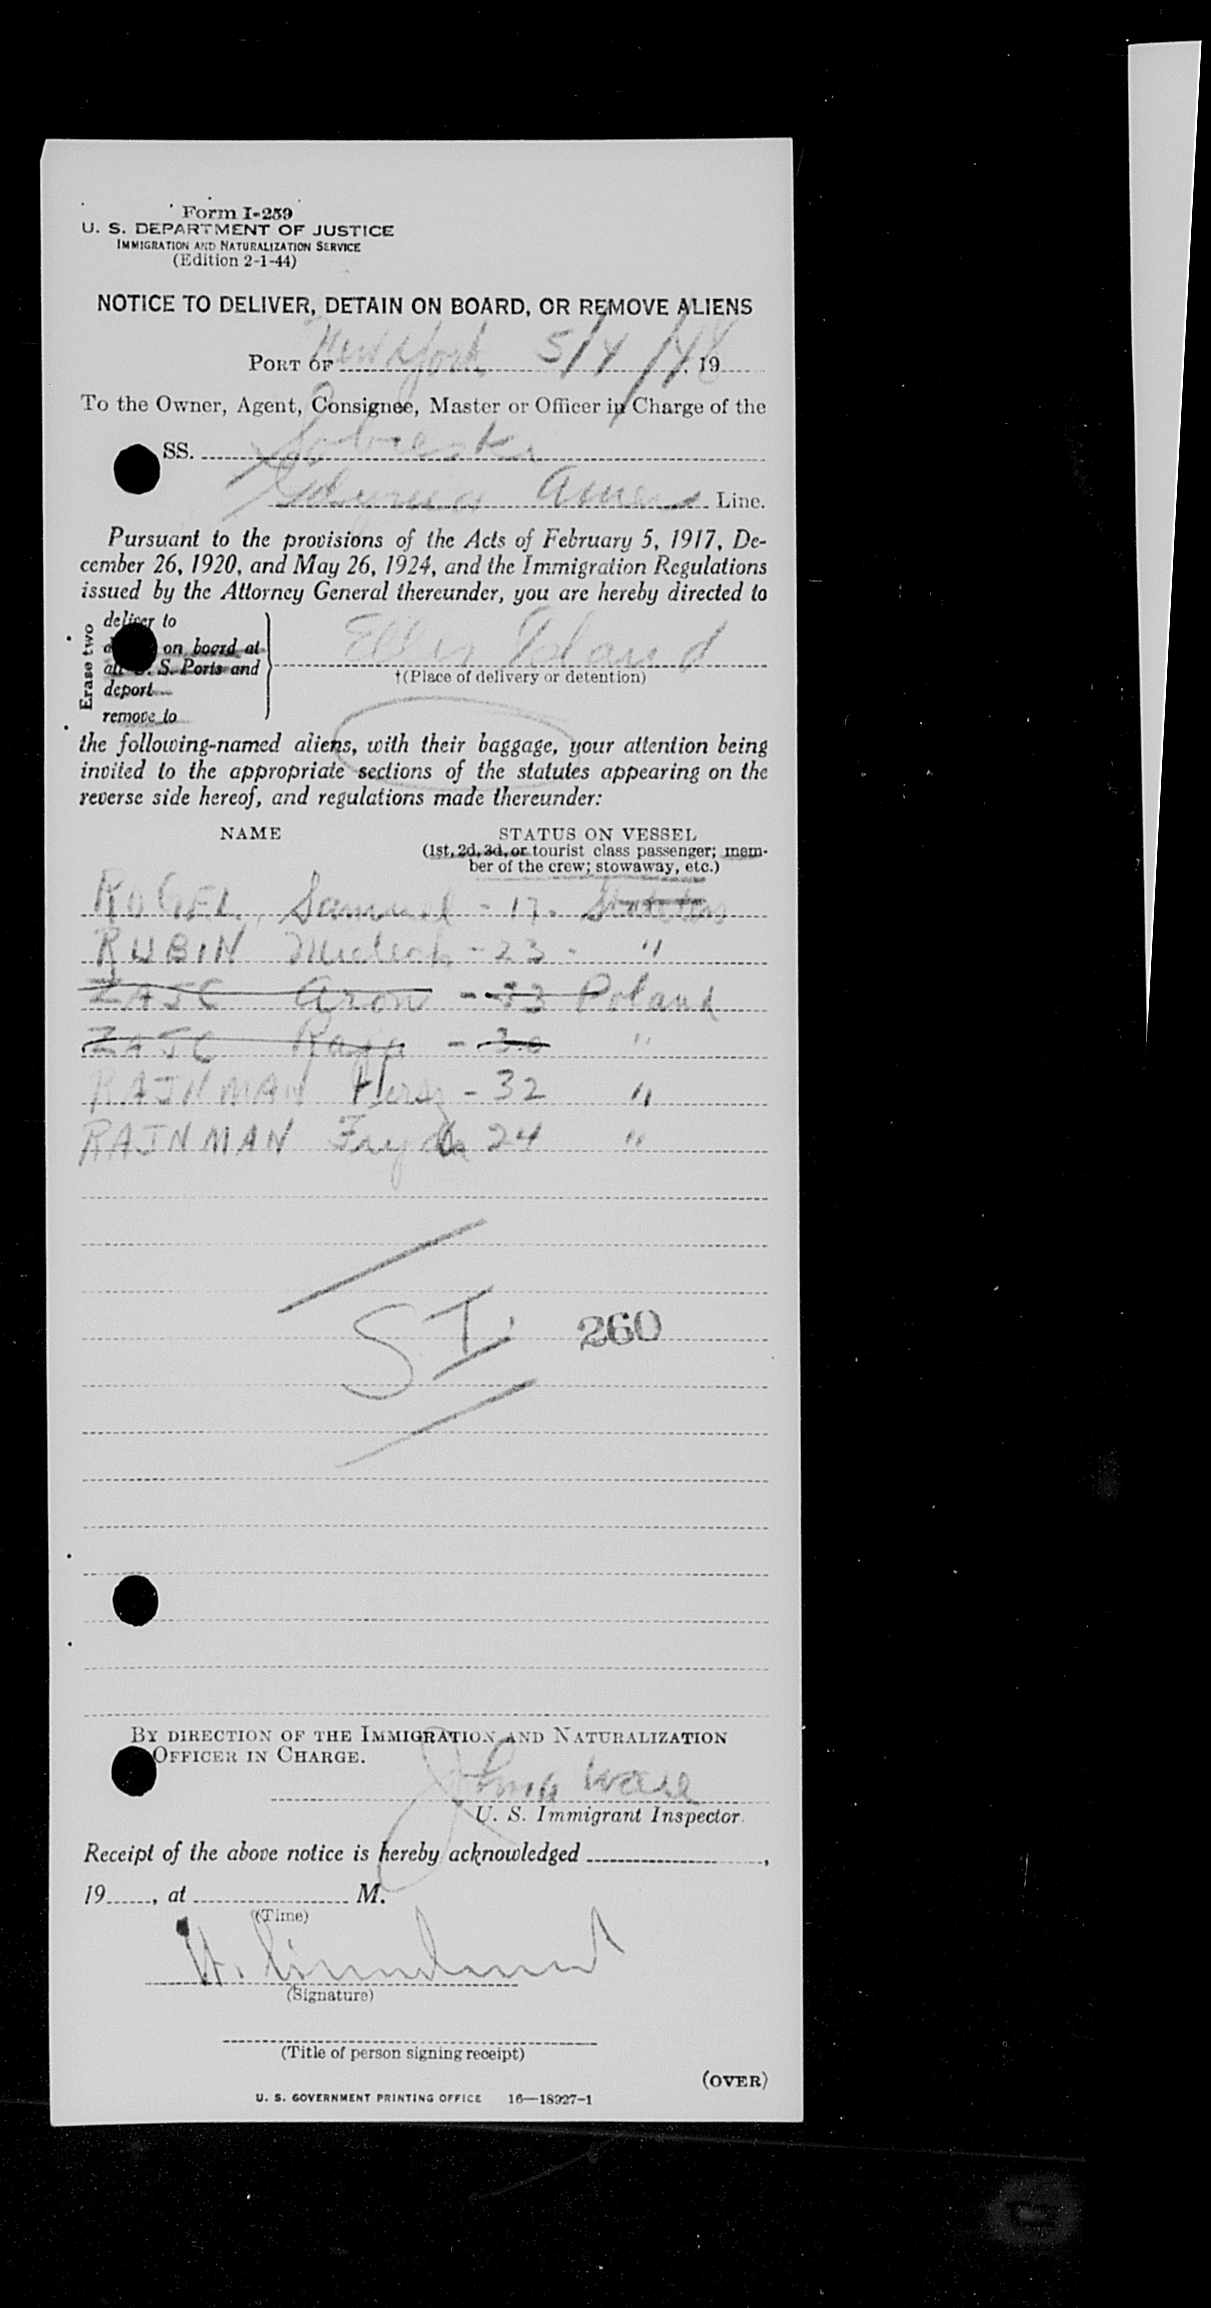 Form I-259
U. S. DEPARTMENT OF JUSTICE
IMMIGRATION AND NATURALIZATION SERVICE
(Edition 2-1-44)
NOTICE TO DELIVER, DETAIN ON BOARD, OR REMOVE ALIENS
PORT OF New York 5/4/48, 19
To the Owner, Agent, Consignee, Master or Officer in Charge of the
SS. Sobieski
Gdynia Amer Line.
Pursuant to the provisions of the Acts of February 5, 1917, De-
cember 26, 1920, and May 26, 1924, and the Immigration Regulations
issued by the Attorney General thereunder, you are hereby directed to
Erase two
deliver to
on board at
all U. S. Ports and
deport
remove to
Ellis Island
†(Place of delivery or detention)
the following-named aliens, with their baggage, your attention being
invited to the appropriate sections of the statutes appearing on the
reverse side hereof, and regulations made thereunder:
NAME STATUS ON VESSEL
(1st, 2d, 3d, or tourist class passenger; mem-
ber of the crew; stowaway, etc.)
ROGEL, Samuel - 17.
RUBIN - 23 - "
ZAJC Aron - 33 Poland
ZAJC Raja - 30 "
RAJNMAN Hersz - 32 "
RAJNMAN Fryda 24 "
SI. 260
BY DIRECTION OF THE IMMIGRATION AND NATURALIZATION
OFFICER IN CHARGE.
Ware
U. S. Immigrant Inspector.
Receipt of the above notice is hereby acknowledged ,
19 , at M.
(Time)
H.
(Signature)
(Title of person signing receipt)
(OVER)
U. S. GOVERNMENT PRINTING OFFICE 16—18927-1